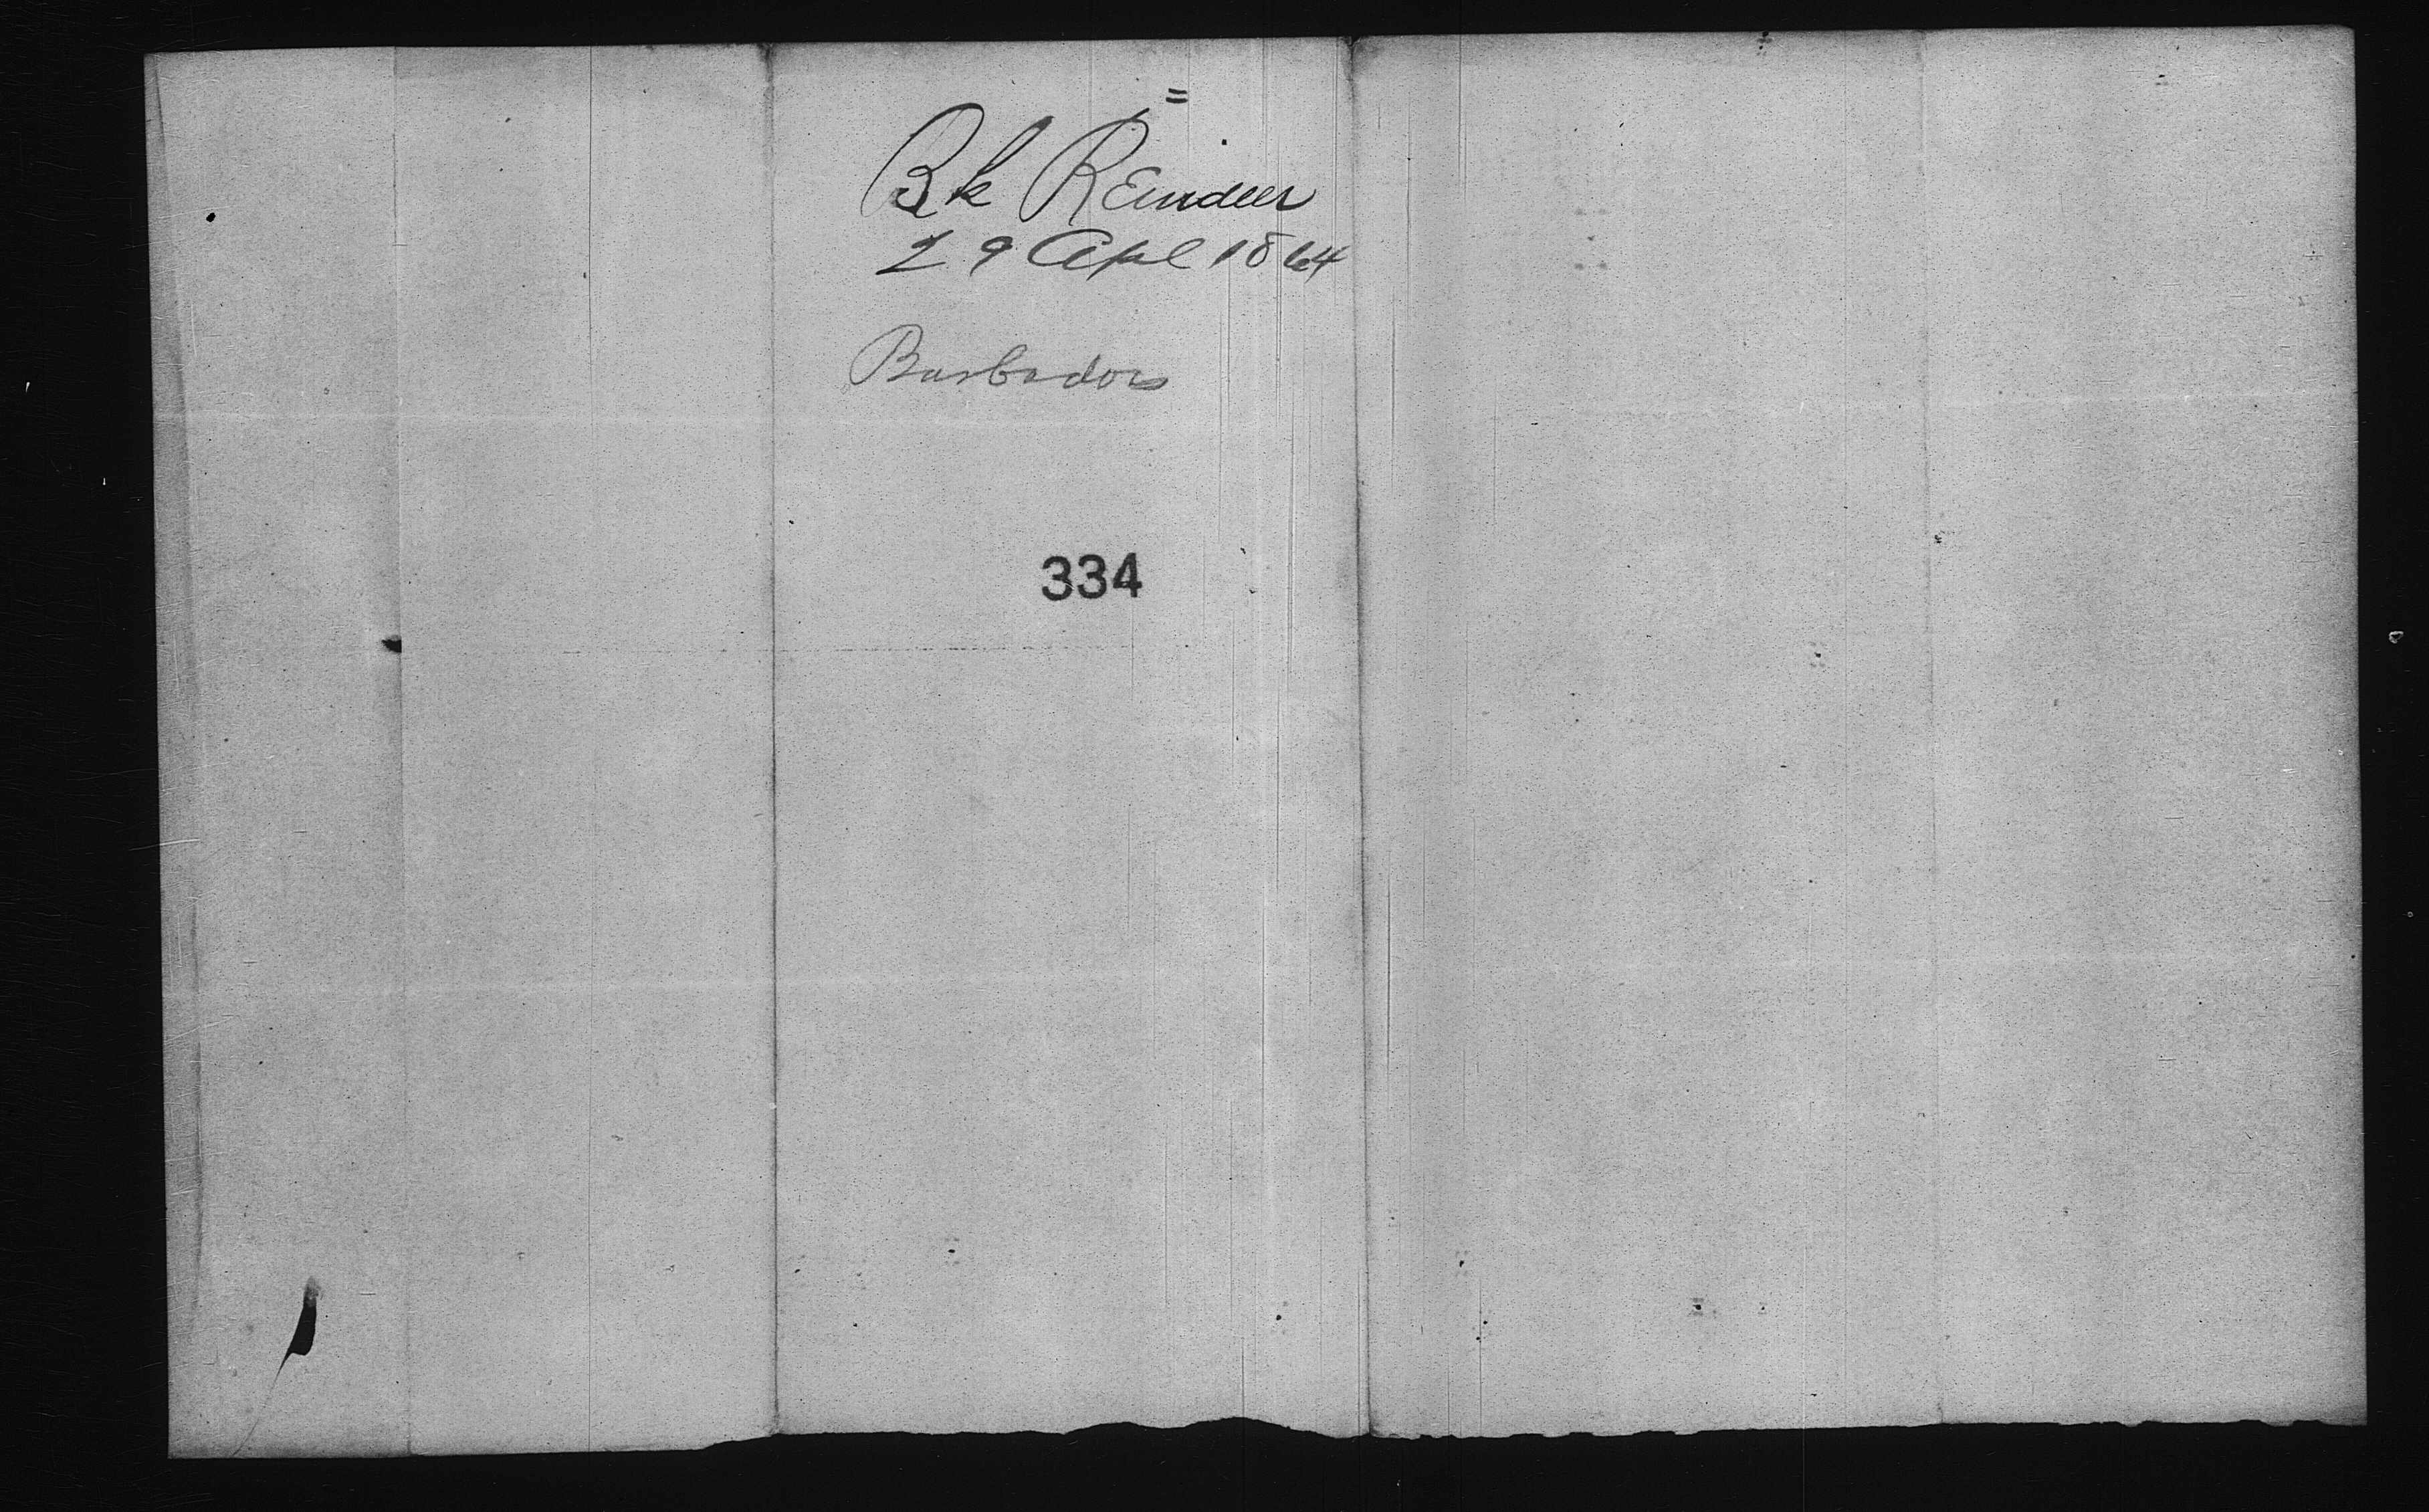 =
Bk Reindeer
29 Apl 1864
Barbados
334